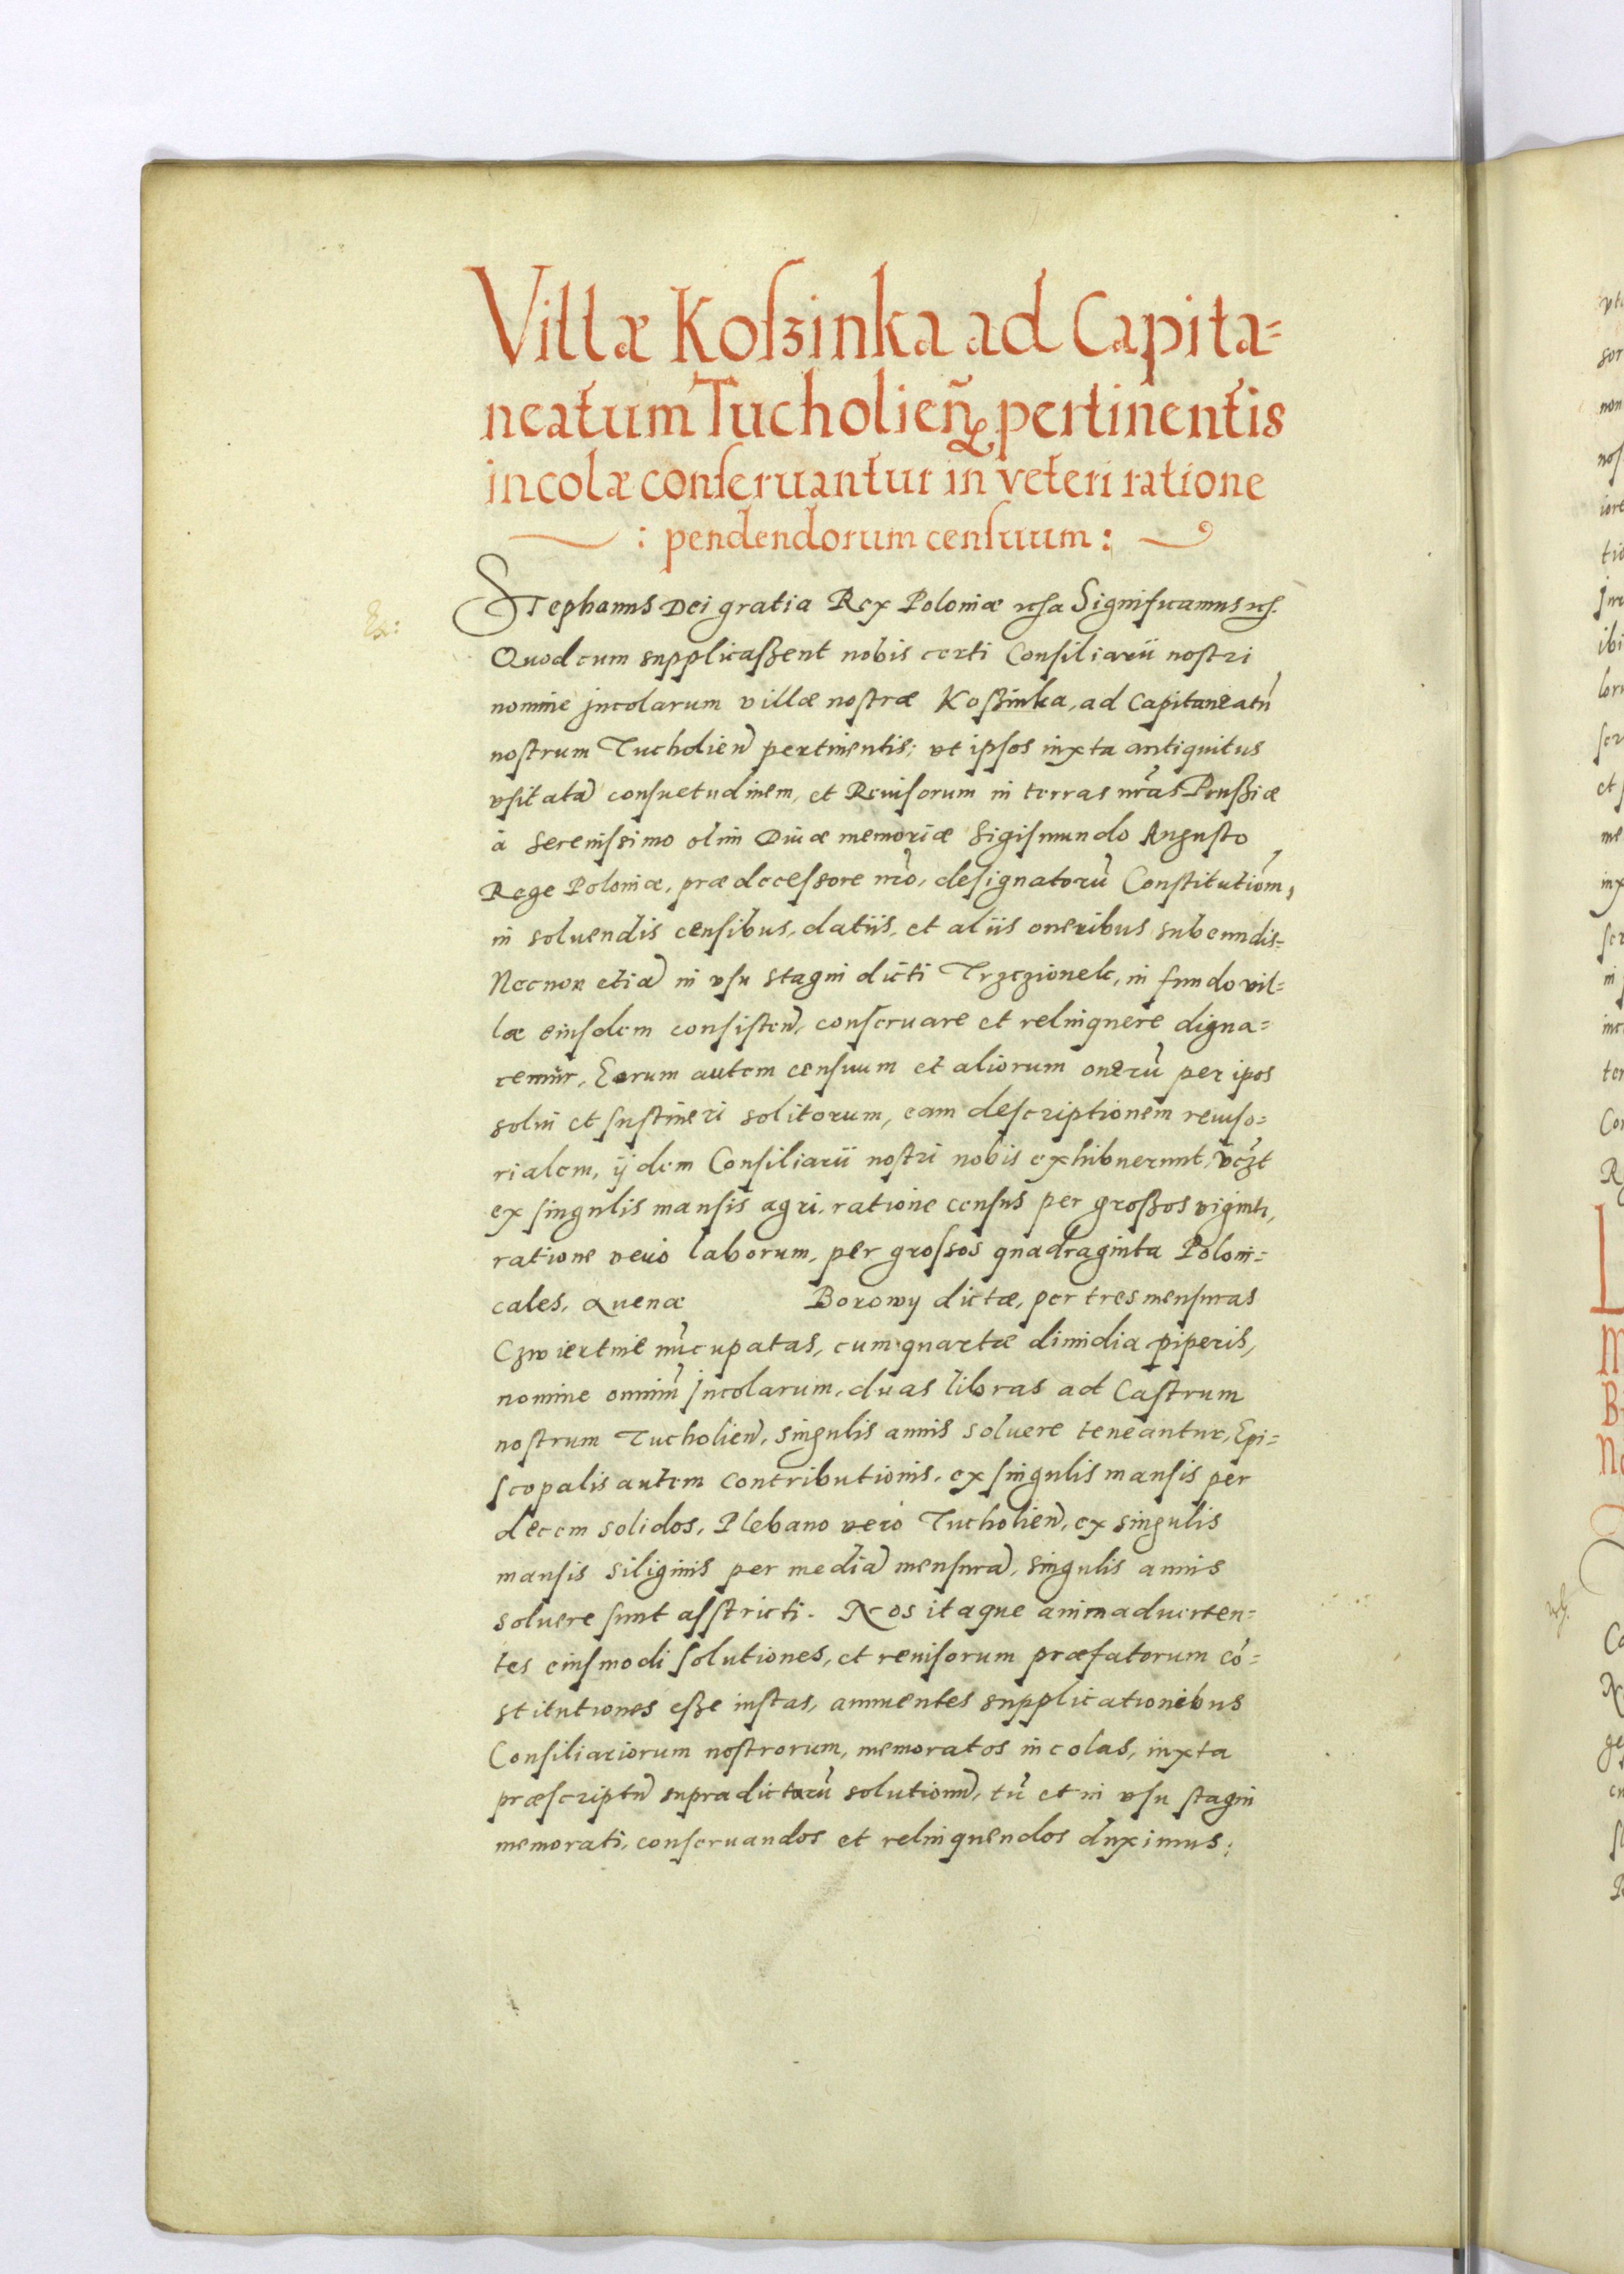 Villæ Koſzinka ad Capita=
neatum Tucholien̄ pertinentis
incolæ conſeruantur in veteri ratione
: pendendorum cenſuum :
Ex:
Stephanus Dei gratia Rex Poloniæ Significamus
Quod cum supplicaßent nobis certi Conſiliarii noſtri
nomine jncolarum villæ noſtræ Koßinka, ad Capitaneatū
noſtrum Tucholien̄ pertinentis; vt ipſos iuxta antiquitus
vſitatā conſuetudinem, et Reuiſorum in terras nr̃as Prußiæ
à Sereniſsimo olim Diuæ memoriæ Sigiſmundo Auguſto
Rege Poloniæ, prædeceſsore nr̃o, deſignatorū Conſtitutiōm,
in soluendis cenſibus, datiis, et aliis oneribus subeundis=
Necnon etiā in vſu stagni dicti Trzczionek, in fundo vil=
læ eiuſdem conſiſten̄, conſeruare et relinquere digna=
remur, Earum autem cenſuum et aliorum onerū per ipos
solui et ſuſtineri solitorum, eam deſcriptionem reuiſo=
rialem, ijdem Conſiliarii noſtri nobis exhibuerunt, vczt
ex ſingulis manſis agri, ratione cenſus per großos viginti,
ratione vero laborum, per groſsos quadraginta Poloni=
cales. Auenæ Borowy dictæ, per tres menſuras
Czwiertnie nūcupatas, cum quartæ dimidia piperis,
nomine omniū jncolarum, duas libras ad Caſtrum
noſtrum Tucholien̄, singulis annis soluere teneantur, Epi=
ſcopalis autem contributionis, ex ſingulis manſis per
decem solidos, Plebano verò Tucholien̄, ex singulis
manſis siliginis per mediā menſurā, singulis annis
soluere ſunt aſſtricti. Nos itaque animaduerten=
tes eiuſmodi ſolutiones, et reuiſorum præfatorum cō=
stitutiones eße iuſtas, annuentes supplicationibus
Conſiliariorum noſtrorum, memoratos incolas, iuxta
præſcriptū supradictarū solutionū, tū et in vſu ſtagni
memorati, conſeruandos et relinquendos duximus: